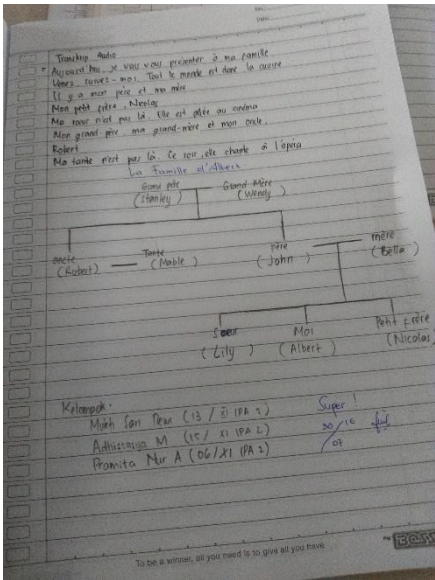 Transkrip Audio
Aujourd'hui, je vais vous présenter à ma famille
Venez, suivez-moi. Tout le monde est dans la cuisine
Il y a mon père et ma mère
Mon petit frère, Nicolas
Ma sœur n'est pas là. Elle est allée au cinéma
Mon grand-père, ma grand-mère et mon oncle,
Robert
Ma tante n'est pas là. Ce soir, elle chante à l'opéra
La Famille d'Albert
Grand père Grand Mère
(Stanley) (Wendy)
oncle Tante père mère
(Robert) (Mable) (John) (Bella)
Soeur Moi Petit Frère
(Lily) (Albert) (Nicolas)
Kelompok:
Sari Dewi (13 / XI IPA 2)
Adhistasya M (15 / XI IPA 2)
Pramita Nur A (06 / XI IPA 2)
Super !
30/16
/07
To be a winner, all you need is to give all you have